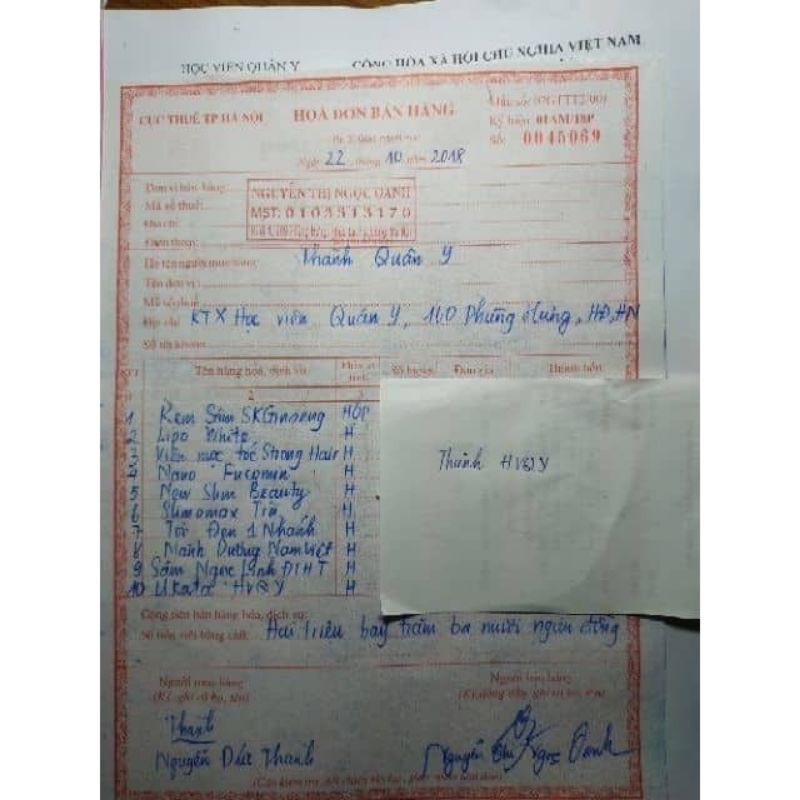 HỌC VIỆN QUÂN Y
CỘNG HÒA XÃ HỘI CHỦ NGHĨA VIỆT NAM
CỤC THUẾ TP HÀ NỘI
HOÁ ĐƠN BÁN HÀNG
Ký hiệu: 01AM/18P
Số: 0045069
Ngày 22 tháng 10 năm 2018
Đơn vị bán hàng:
NGUYỄN THỊ NGỌC OANH
Mã số thuế:
MST: 0103313170
Địa chỉ:
Điện thoại:
Họ tên người mua hàng: Thành Quân Y
Tên đơn vị:
Mã số thuế:
Địa chỉ: KTX Học viện Quân Y, 160 Phùng Hưng, HĐ, HN
Số tài khoản:
STT Tên hàng hóa, dịch vụ Đơn vị tính Số lượng Đơn giá Thành tiền
2 3
1 Kem Sâm SKGinseng HỘP
2 Lipo White H
3 Viên mọc tóc Strong Hair H
4 Nano Fucomin H
5 New Slim Beauty H
6 Slimomax Tía H
7 Tỏi Đen 1 Nhánh H
8 Mãnh Dương Nam Việt H
9 Sâm Ngọc Linh ĐTHT H
10 Ukata HVQY H
Thành HVQY
Cộng tiền bán hàng hóa, dịch vụ:
Số tiền viết bằng chữ: Hai triệu bảy trăm ba mươi ngàn đồng
Người mua hàng
Người bán hàng
(Ký, ghi rõ họ, tên)
Thành
Nguyễn Đức Thành
Nguyễn Thị Ngọc Oanh